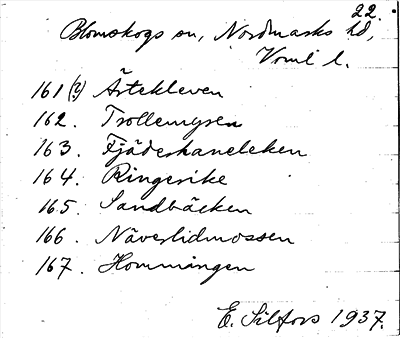 22.
Blomskogs sn, Nordmarks hd,
Vrml l.
161 (?) Ärtekleven
162. Trollemyren
163. Fjäderhaneleken
164. Ringerike
165. Sandbäcken
166. Näverlidmossen
167. Hommungen
E. Silfors 1937.